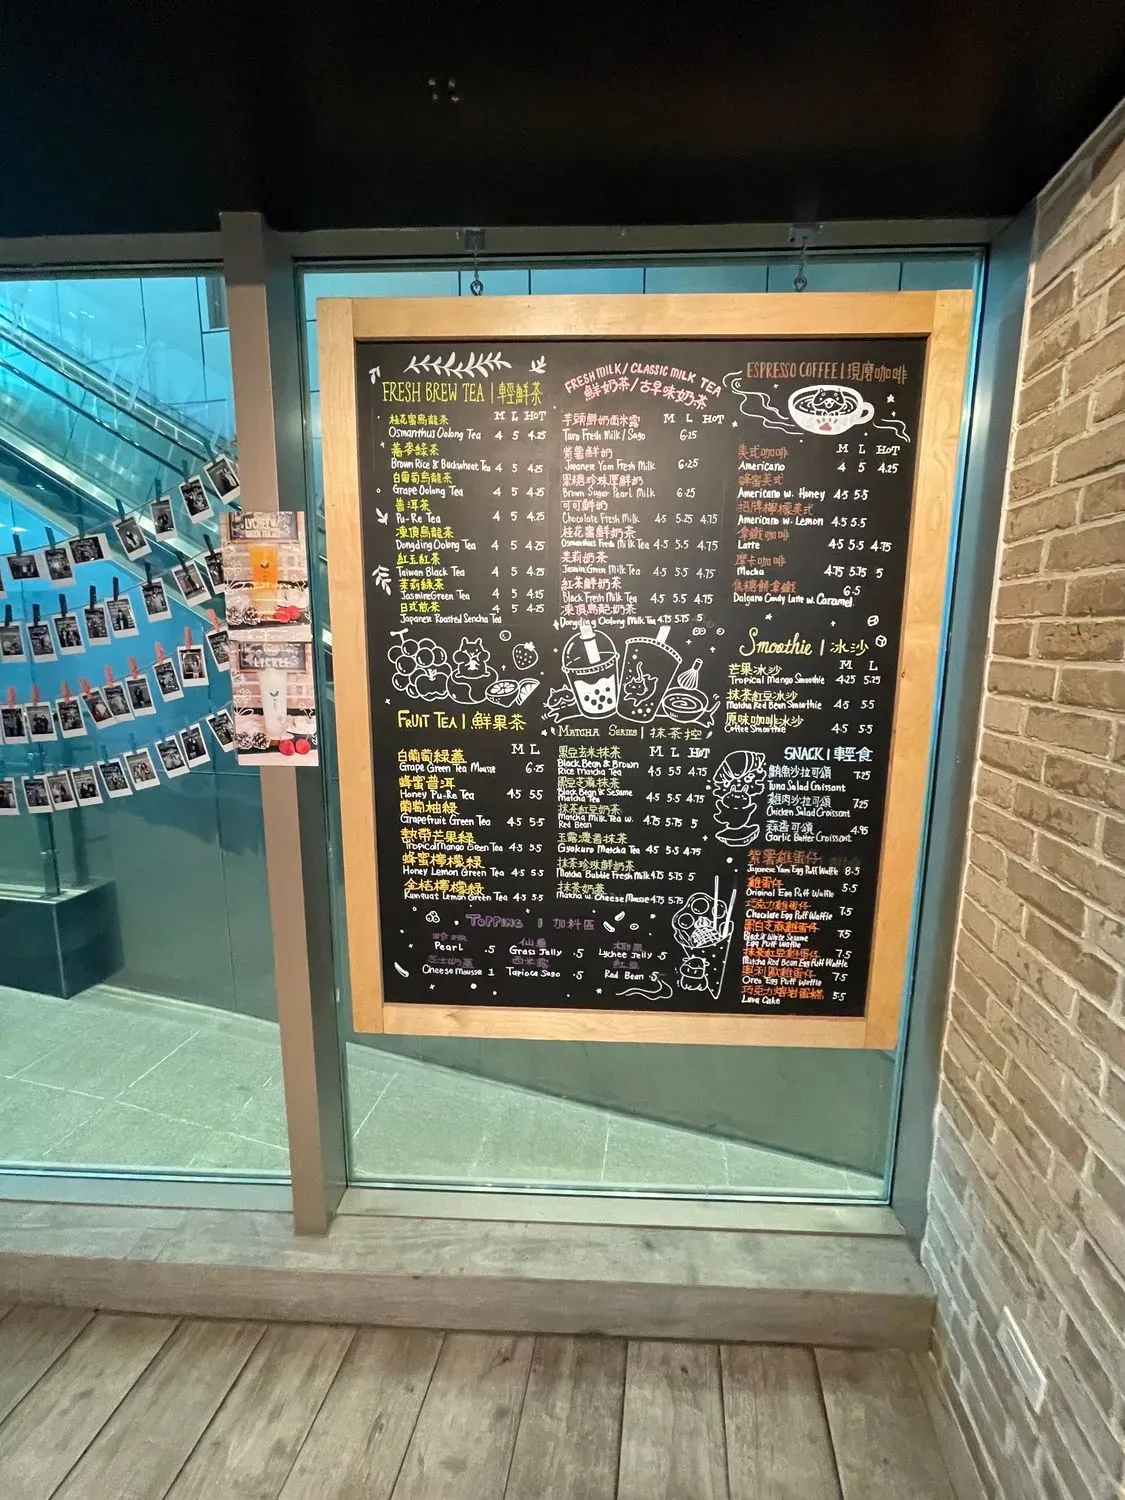 FRESH BREW TEA | 輕鮮茶
M L HOT
桂花蜜烏龍茶
Osmanthus Oolong Tea 4 5 4.25
蕎麥綠茶
Brown Rice & Buckwheat Tea 4 5 4.25
白葡萄烏龍茶
Grape Oolong Tea 4 5 4.25
普洱茶
Pu-Re Tea 4 5 4.25
凍頂烏龍茶
Dongding Oolong Tea 4 5 4.25
紅玉紅茶
Taiwan Black Tea 4 5 4.25
茉莉綠茶
Jasmine Green Tea 4 5 4.25
日式煎茶
Japanese Roasted Sencha Tea 4 5 4.25
FRESH MILK / CLASSIC MILK TEA
鮮奶茶/古早味奶茶
M L HOT
芋頭鮮奶西米露
Taro Fresh Milk / Sago 6.25
紫薯鮮奶
Japanese Yam Fresh Milk 6.25
黑糖珍珠厚鮮奶
Brown Sugar Pearl Milk 6.25
可可鮮奶
Chocolate Fresh Milk 4.5 5.25 4.75
桂花蜜鮮奶茶
Osmanthus Fresh Milk Tea 4.5 5.5 4.75
茉莉奶茶
Jasmin Green Milk Tea 4.5 5.5 4.75
紅茶鮮奶茶
Black Fresh Milk Tea 4.5 5.5 4.75
凍頂烏龍奶茶
Dongding Oolong Milk Tea 4.75 5.75 5
ESPRESSO COFFEE | 現磨咖啡
M L HOT
美式咖啡
Americano 4 5 4.25
蜂蜜美式
Americano w. Honey 4.5 5.5
招牌檸檬美式
Americano w. Lemon 4.5 5.5
拿鐵咖啡
Latte 4.5 5.5 4.75
摩卡咖啡
Mocha 4.75 5.75 5
焦糖餅拿鐵
6.5
Dalgona Candy Latte w. Caramel
Smoothie | 冰沙
M L
芒果冰沙
Tropical Mango Smoothie 4.25 5.25
抹茶紅豆冰沙
Matcha Red Bean Smoothie 4.5 5.5
原味咖啡冰沙
Coffee Smoothie 4.5 5.5
FRUIT TEA | 鮮果茶
M L
白葡萄綠蓋
Grape Green Tea Mousse 6.25
蜂蜜普洱
Honey Pu-Re Tea 4.5 5.5
葡萄柚綠
Grapefruit Green Tea 4.5 5.5
熱帶芒果綠
Tropical Mango Green Tea 4.5 5.5
蜂蜜檸檬綠
Honey Lemon Green Tea 4.5 5.5
金桔檸檬綠
Kumquat Lemon Green Tea 4.5 5.5
MATCHA SERIES | 抹茶控
M L HOT
黑豆玄米抹茶
Black Bean & Brown
Rice Matcha Tea 4.5 5.5 4.75
黑豆芝麻抹茶
Black Bean & Sesame
Matcha Tea 4.5 5.5 4.75
抹茶紅豆奶茶
Matcha Milk Tea w.
Red Bean 4.75 5.75 5
玉露濃香抹茶
Gyokuro Matcha Tea 4.5 5.5 4.75
抹茶珍珠鮮奶茶
Matcha Bubble Fresh Milk 4.75 5.75 5
抹茶奶蓋
Matcha w. Cheese Mousse 4.75 5.75
SNACK | 輕食
鮪魚沙拉可頌
Tuna Salad Croissant 7.25
雞肉沙拉可頌
Chicken Salad Croissant 7.25
蒜香可頌
Garlic Butter Croissant 4.95
紫薯雞蛋仔
Japanese Yam Egg Puff Waffle 8.5
雞蛋仔
Original Egg Puff Waffle 5.5
巧克力雞蛋仔
Chocolate Egg Puff Waffle 7.5
黑白芝麻雞蛋仔
Black & White Sesame
Egg Puff Waffle 7.5
抹茶紅豆雞蛋仔
Matcha Red Bean Egg Puff Waffle 7.5
奧利歐雞蛋仔
Oreo Egg Puff Waffle 7.5
巧克力熔岩蛋糕
Lava Cake 5.5
TOPPING | 加料區
珍珠
Pearl .5
仙草
Grass Jelly .5
椰果
Lychee Jelly .5
芝士奶蓋
Cheese Mousse 1
西米露
Tapioca Sago .5
紅豆
Red Bean .5
LYCHEE
LYCHEE